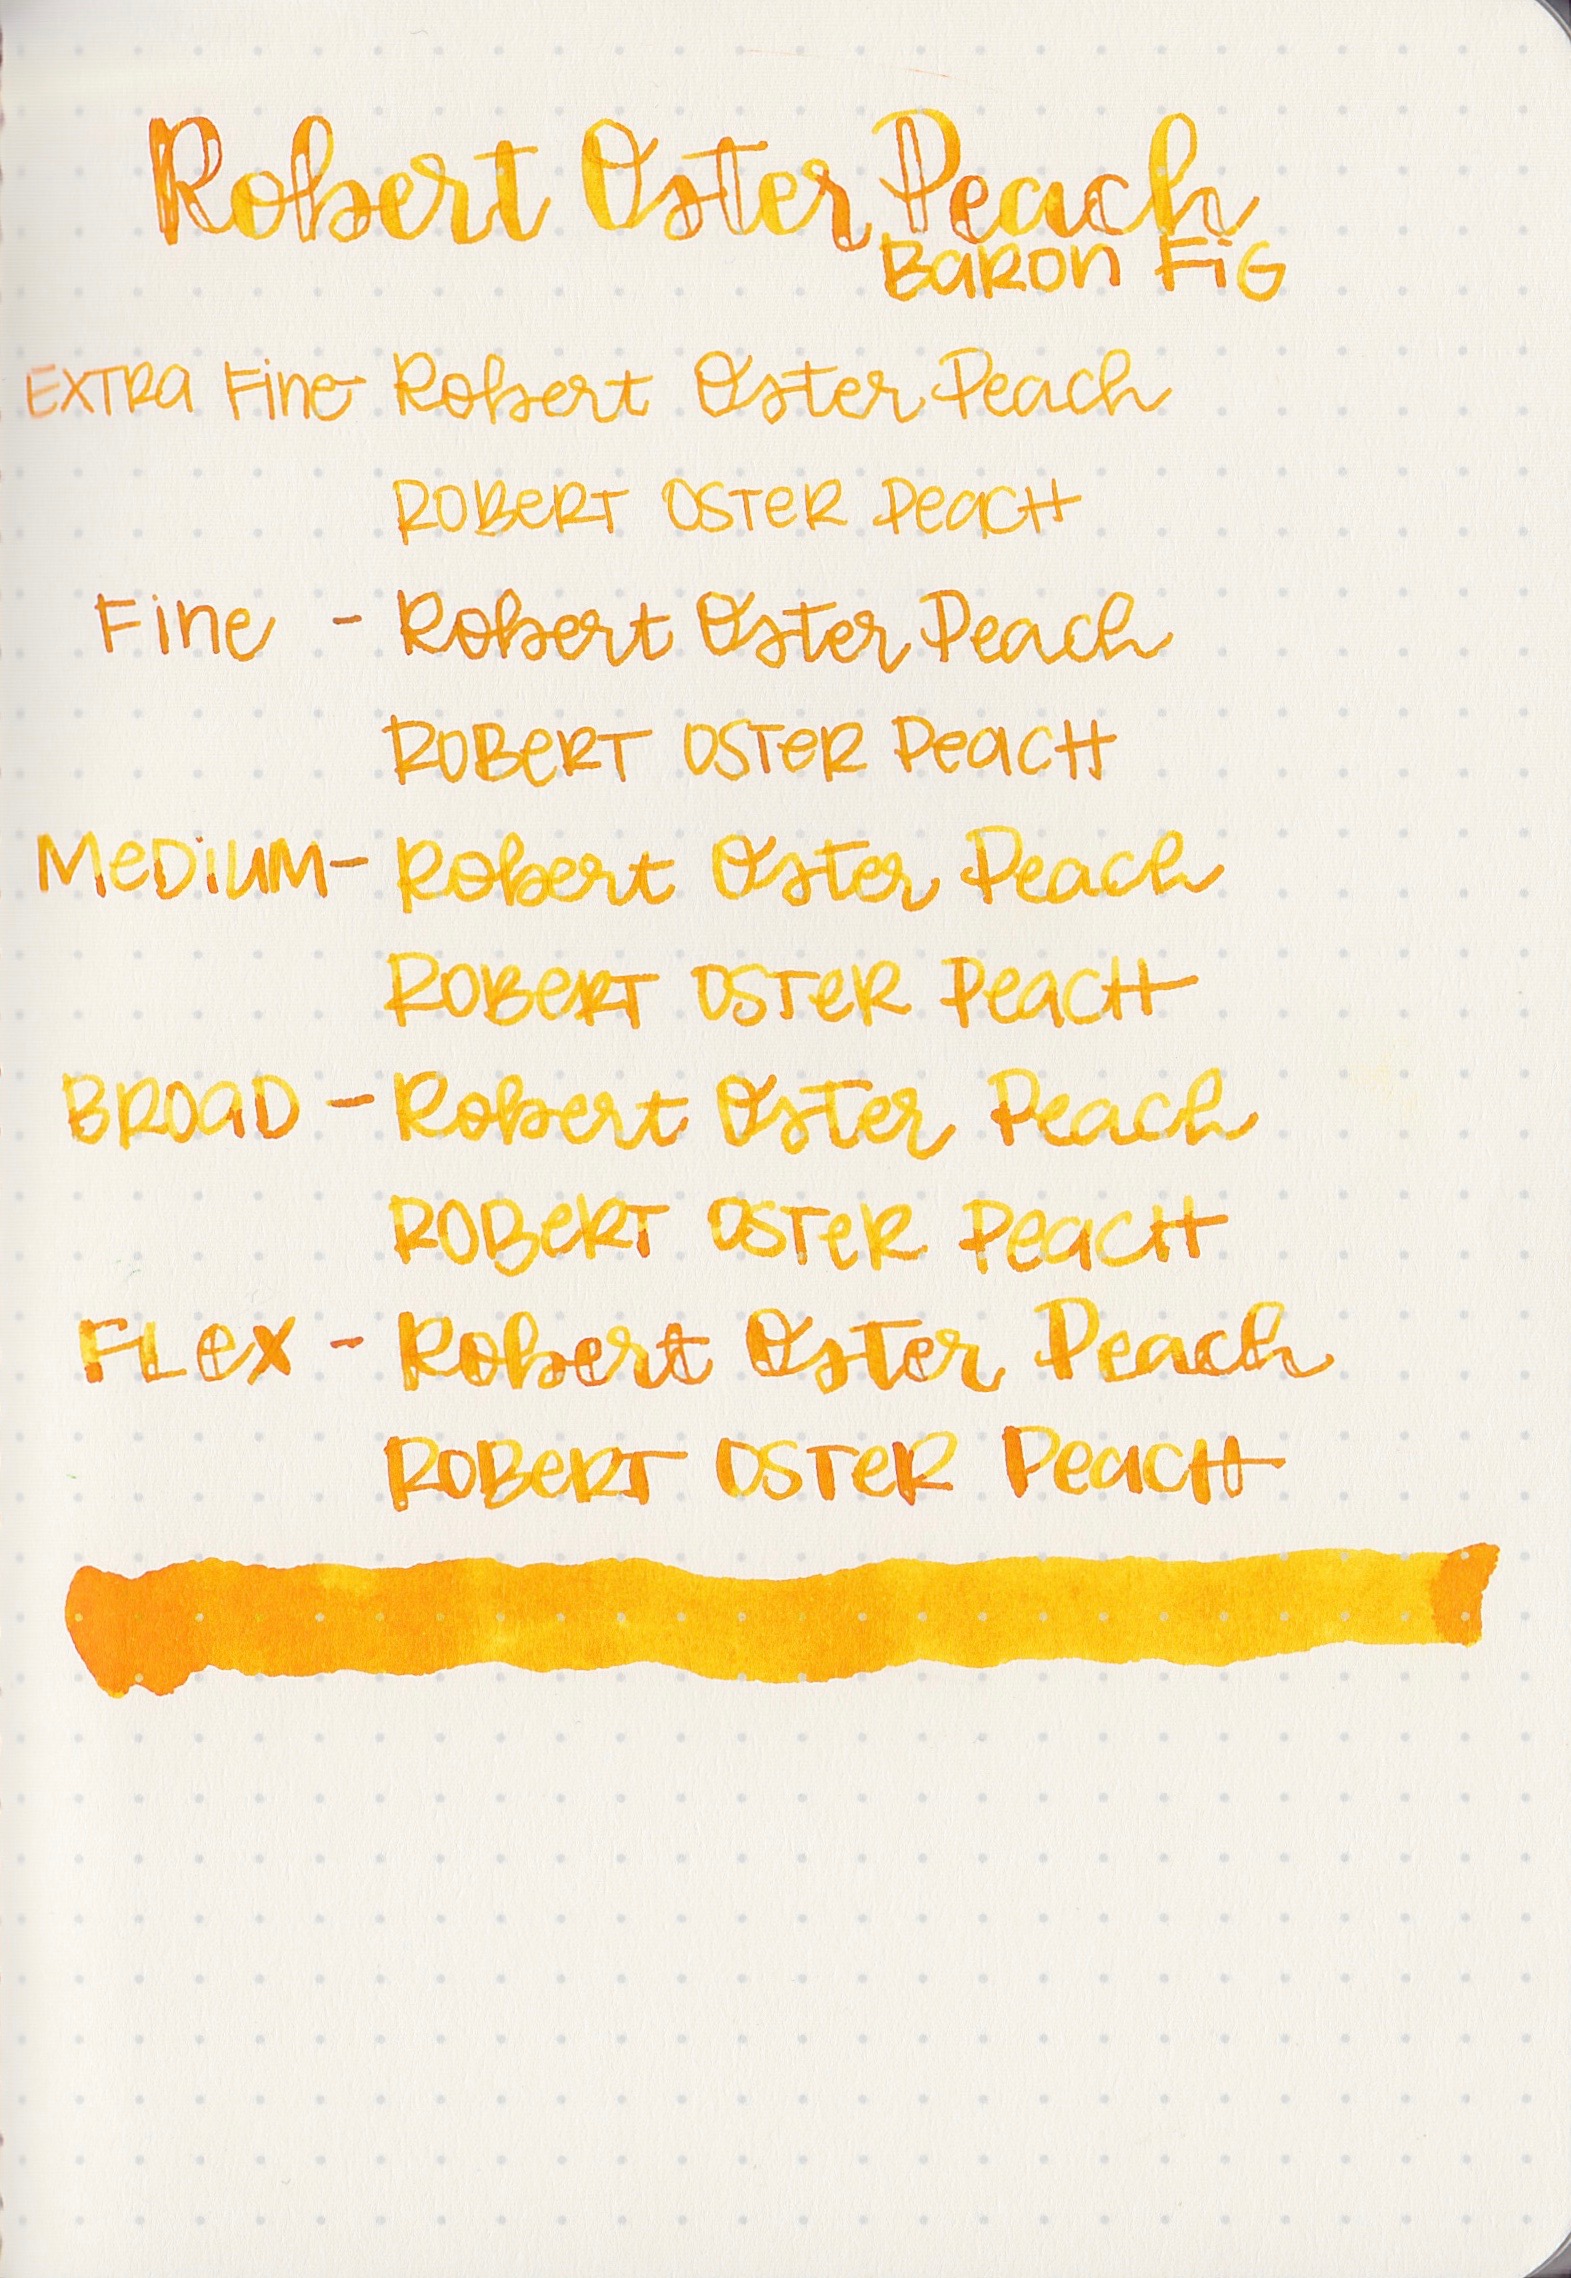 Robert Oster Peach
Baron Fig
Extra Fine - Robert Oster Peach
Robert Oster Peach
Fine - Robert Oster Peach
Robert Oster Peach
Medium - Robert Oster Peach
Robert Oster Peach
Broad - Robert Oster Peach
Robert Oster Peach
Flex - Robert Oster Peach
Robert Oster Peach